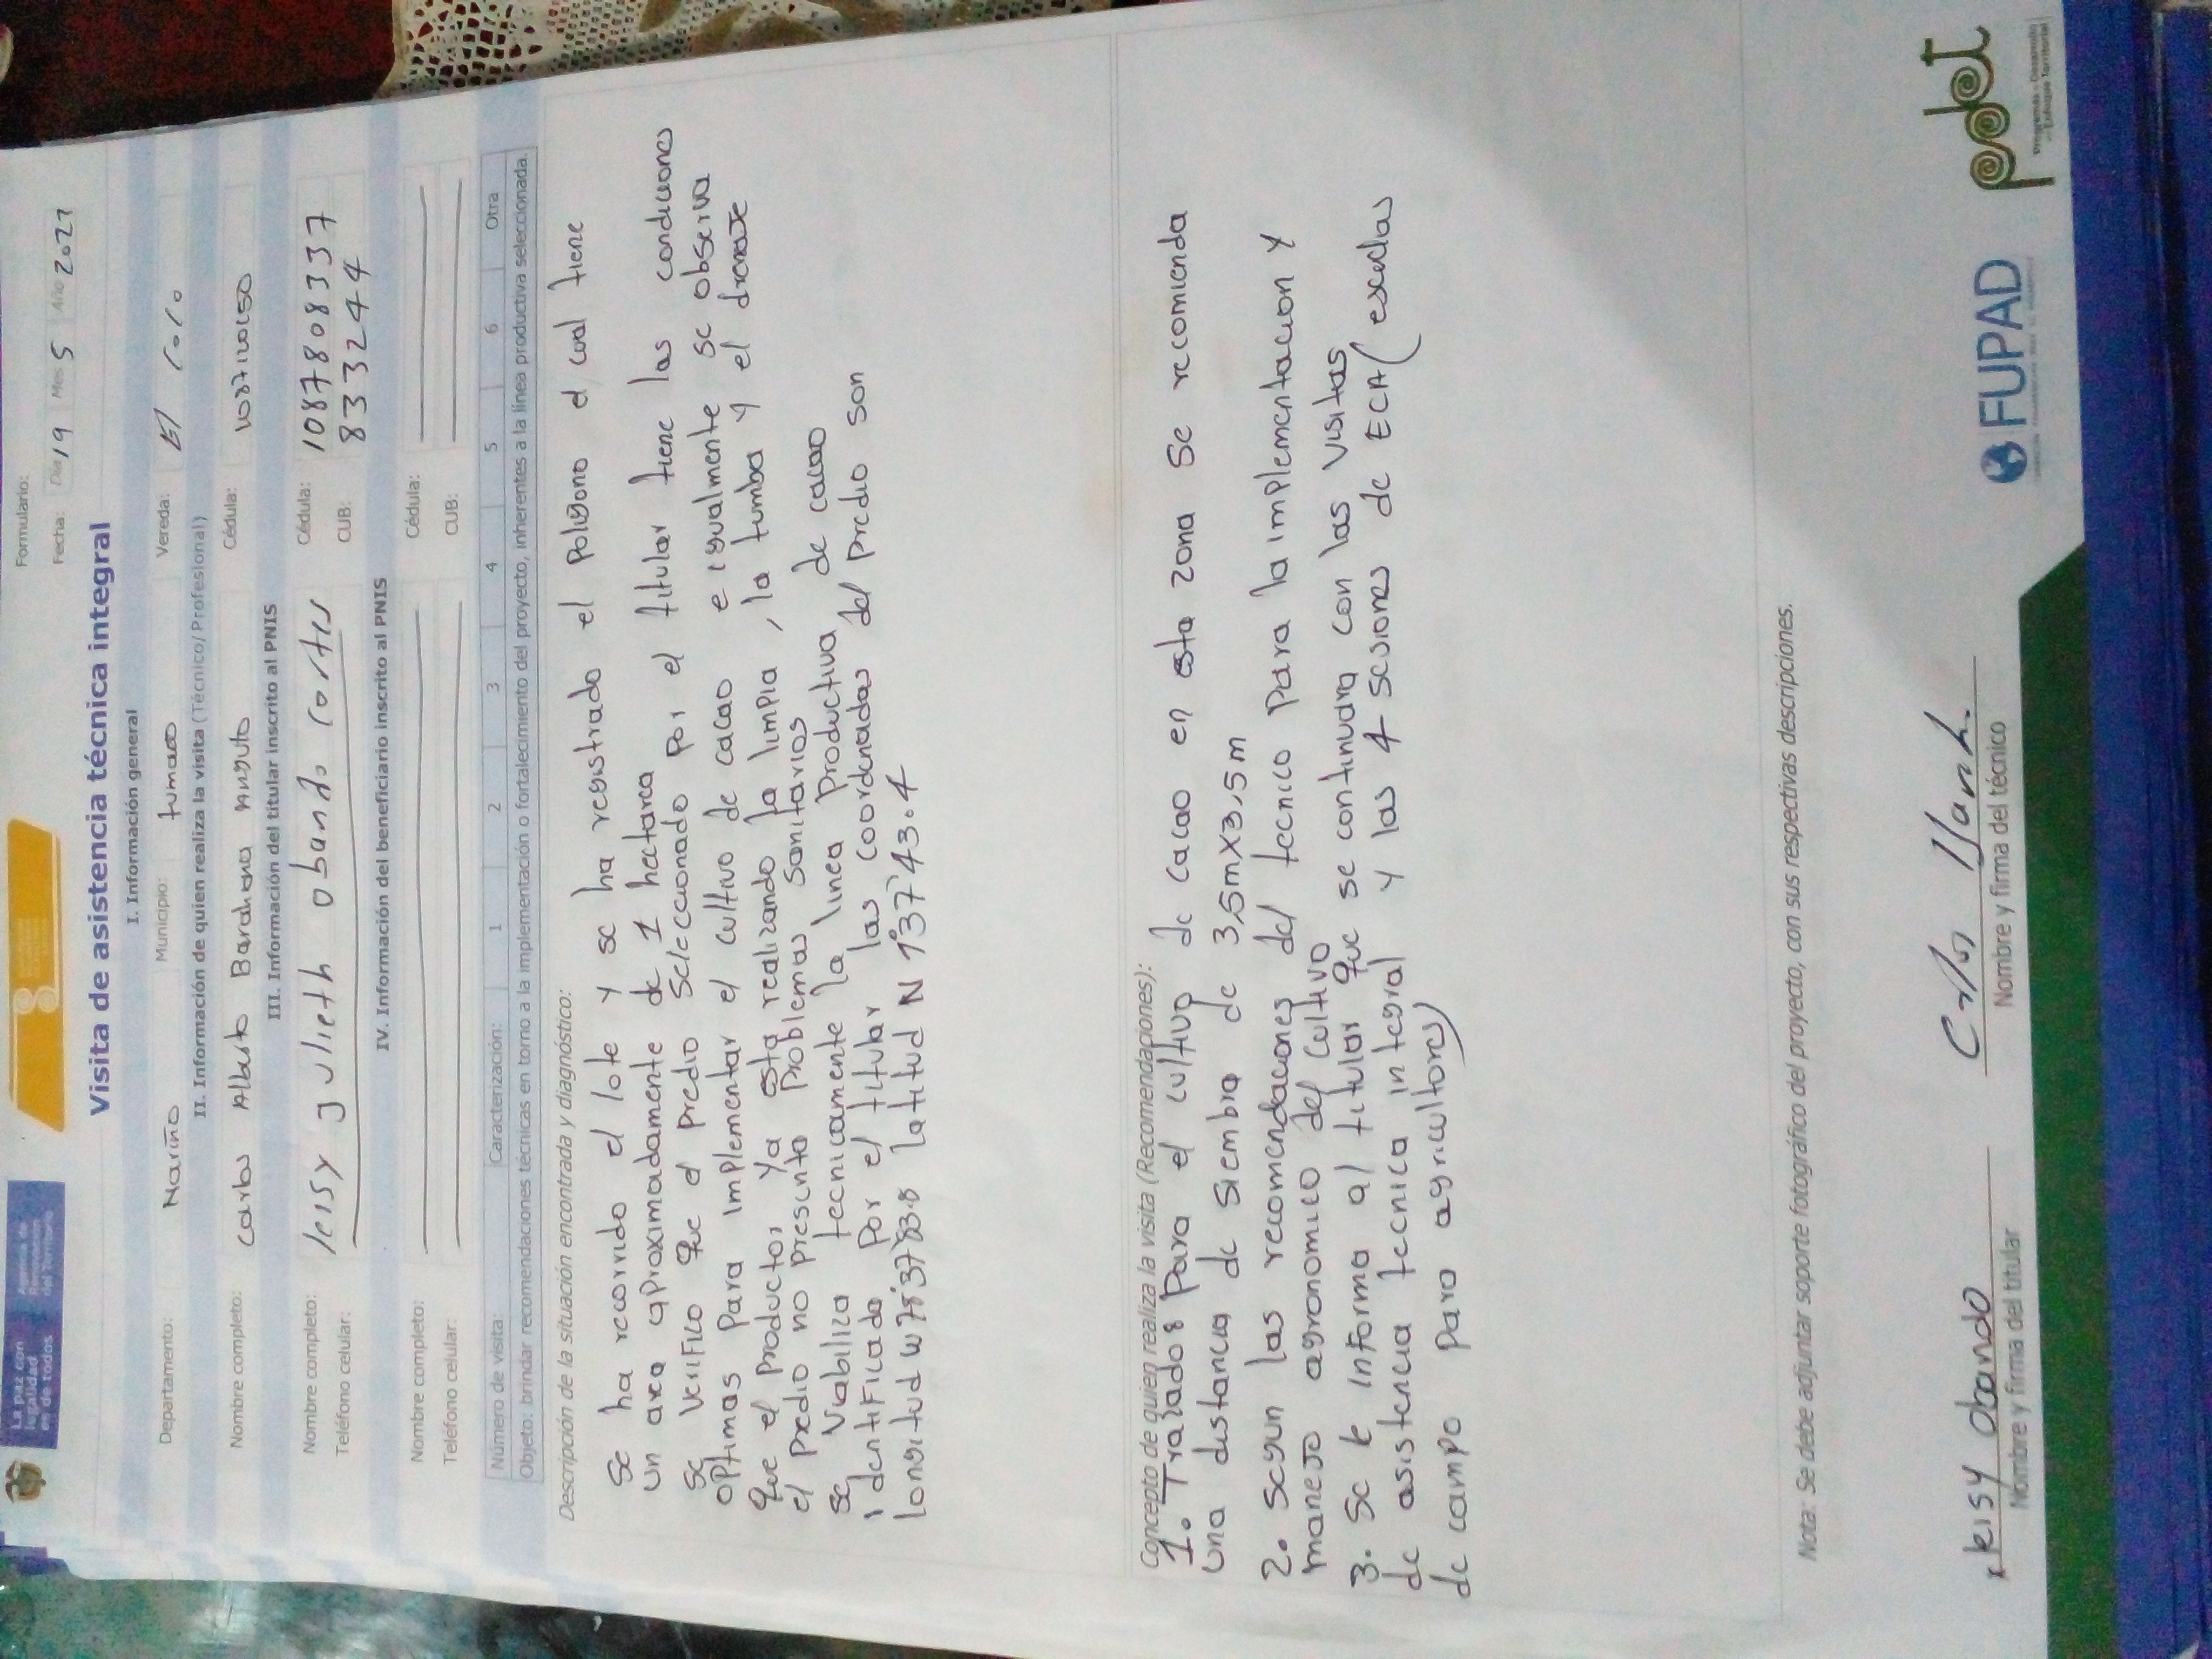 La paz con
legalidad
es de todos
Agencia de
Renovación
del Territorio
Formulario:
Fecha: Día 19 Mes 5 Año 2021
Visita de asistencia técnica integral
I. Información general
Departamento: Nariño Municipio: tumaco Vereda: El
II. Información de quien realiza la visita (Técnico/ Profesional)
Nombre completo: Carlos Alberto Barahona Angulo Cédula:
III. Información del titular inscrito al PNIS
Nombre completo: leisy Julieth obando cortes Cédula: 1087808337
Teléfono celular: CUB: 8333244
IV. Información del beneficiario inscrito al PNIS
Nombre completo: Cédula:
Teléfono celular: CUB:
Número de visita: Caracterización: 1 2 3 4 5 6 Otra
Objeto: brindar recomendaciones técnicas en torno a la implementación o fortalecimiento del proyecto, inherentes a la línea productiva seleccionada.
Descripción de la situación encontrada y diagnóstico:
Se ha recorrido el lote y se ha registrado el poligono el cual tiene
un area aproximadamente de 1 hectarea
se verifico que el predio seleccionado por el titular tiene las condiciones
optimas para implementar el cultivo de cacao e igualmente se observa
que el productor, ya esta realizando la limpia, la tumba y el drenaje
el predio no presenta problemas sanitarios
se viabiliza tecnicamente la linea productiva de cacao
identificado por el titular las coordenadas del predio son
longitud w latitud N 1°37'43.4
Concepto de quien realiza la visita (Recomendaciones):
1. Trazado: para el cultivo de cacao en esta zona se recomienda
una distancia de siembra de 3,5mx3,5m
2. segun las recomendaciones del tecnico para la implementacion y
manejo agronomico del cultivo
3. se le informa al titular que se continuara con las visitas
de asistencia tecnica integral y las 4 sesiones de ECA (escuelas
de campo para agricultores)
Nota: Se debe adjuntar soporte fotográfico del proyecto, con sus respectivas descripciones.
leisy obando
Nombre y firma del titular
Nombre y firma del técnico
FUPAD
pdet
Programas de Desarrollo
con Enfoque Territorial